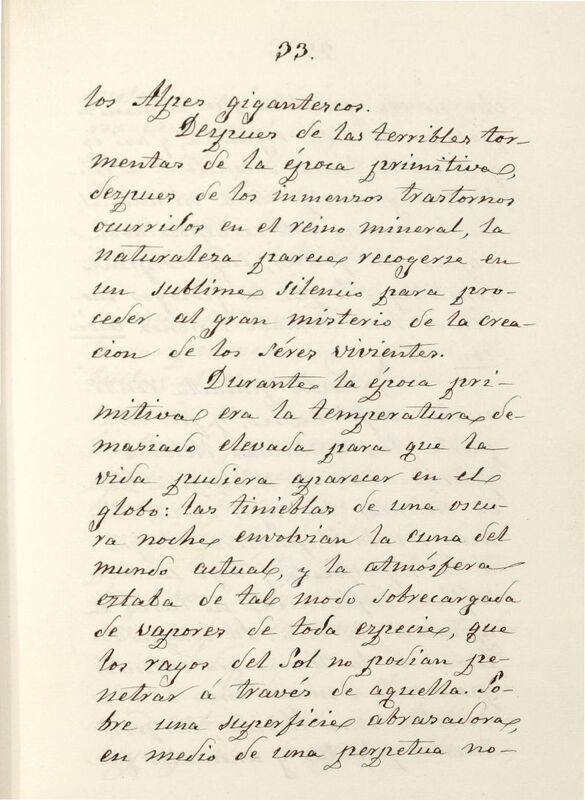 33.
los Alpes gigantescos.
Despues de las terribles tor-
mentas de la época primitiva,
despues de los inmensos trastornos
ocurridos en el reino mineral, la
naturaleza parece recogerse en
un sublime silencio para pro-
ceder al gran misterio de la crea-
cion de los séres vivientes.
Durante la época pri-
mitiva era la temperatura de-
masiado elevada para que la
vida pudiera aparecer en el
globo: las tinieblas de una oscu-
ra noche envolvian la cuna del
mundo actual, y la atmósfera
estaba de tal modo sobrecargada
de vapores de toda especie, que
los rayos del Sol no podian pe-
netrar á través de aquella. So-
bre una superficie abrasadora,
en medio de una perpetua no-